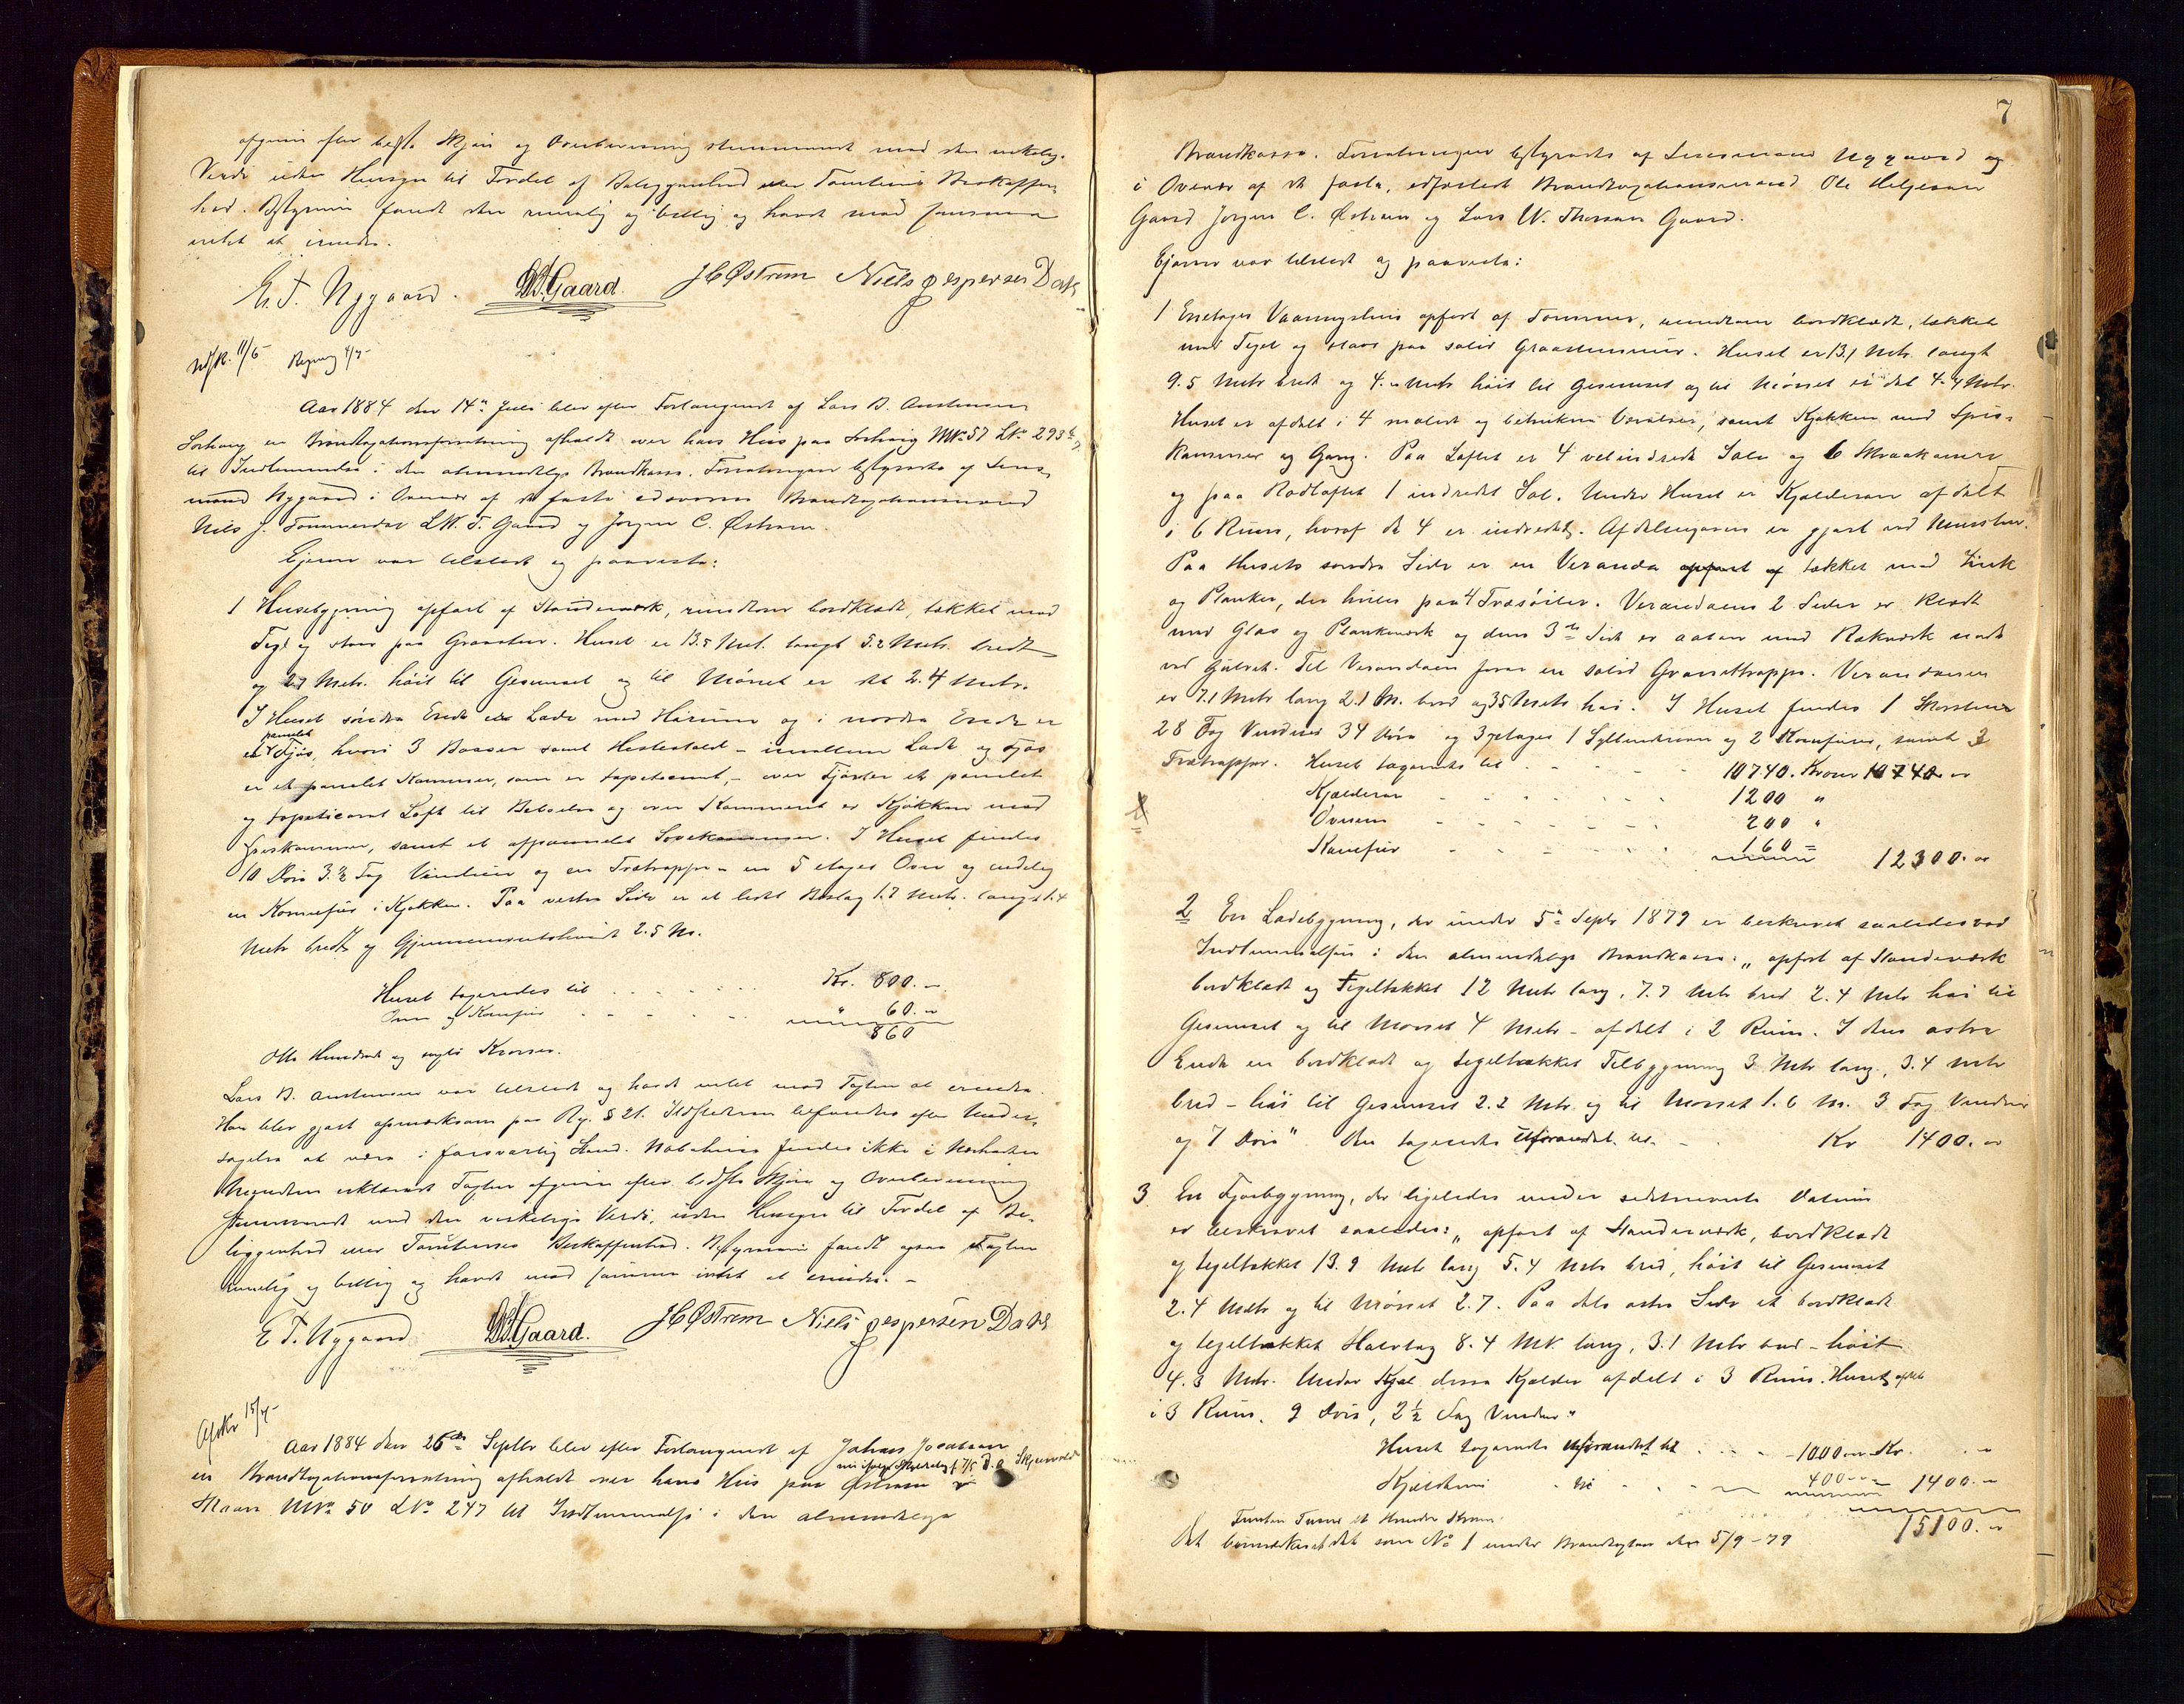 afgiven efter bedste Skjøn og Overbevisning stemmende med den virkelig.
Værdi uden Hensyn til Fordel af Beliggenhed eller Tomtens Beskaffen
hed. Bestyreren fandt den rimelig og billig og havde mod samme
intet at erindre.
E. T. Nygaard. LWT.Gaard. JCØstrem Niels Jespersen Dahl
Udsk. 11/6 Regning 4/7
Aar 1884 den 14de Juli blev efter Forlangende af Lars B. Austensen
Sørhaug en Brandtaxationsforretning afholdt over hans Hus paa Sørhaug MNo 57 LNo 293
til Indlemmelse i den almindelige Brandkasse. Forretningen bestyredes af Lens
mand Nygaard i Overvær af de faste edsvorne Brandtaxationsmænd
Nils J. Tommerdal LW. T. Gaard og Jørgen C. Østrem.
Ejeren var tilstede og paaviste:
1 Husebygning opført af Standerværk, rundtom bordklædt, tækket med
Tegl og staar paa Graasten. Huset er 13.5 Met. langt 5.2 Metr. bredt
og 2.7 Metr. høit til Gesimset og til Mønet er det 2.4 Metr.
I Huset søndre Ende er Lade med Hørum og i nordre Ende er
panelet
et Fjøs, hvori 3 Baaser samt Hestestald - imellem Lade og Fjøs
er et panelet Kammer, som er tapetseret, - over Fjøset et panelet
og tapetseret Loft til Beboelse og over Kammeret er Kjøkken med
Spiskammer, samt et afpanelet Sovekammer. I Huset findes
10 Døre 3 ½ Fag Vinduer og en Trætrappe - en 5 etages Ovn og endelig
en Komfur i Kjøkken. Paa vestre Side er et lidet Bislag 1.7 Metr. langt 1.4
Metr bredt og Gjennemsnitshøide 2.5 M.
Huset taxeredes til . . . . . . Kr. 800. -
Ovn og Komfur - - - - - " 60. -
860
Otte Hundrede og seksti Kroner.
Lars B. Austensen var tilstede og havde intet mod Taxten at erindre.
Han blev gjort opmærksom paa Rg. § 21. Ildstederne befandtes efter Under,
søgelse at være i forsvarlig Stand. Nabohuse findes ikke i Nærheden
Mændene erklærede Taxten afgiven efter bedste Skjøn og Overbevisning
stemmende med den virkelige Værdi, uden Hensyn til Fordel af Be,
liggenhed eller Tomternes Beskaffenhed. Bestyreren fandt ogsaa Taxten
rimelig og billig og havde mod samme intet at erindre. -
E. T. Nygaard LWT.Gaard. JCØstrem Niels Jespersen Dahl
Afskr 15/4
Aar 1884 den 26de Septbr blev efter Forlangende af Johans Jonassen
en Brandtaxationsforretning afholdt over hans Hus paa Østrem
Skaare MNo 50 LNo 247 til Indlemmelse i den almindelige
7
Brandkasse. Forretningen bestyredes af Lensmand Nygaard og
i Overvær af de faste, edfæstede Brandtaxationsmænd Ole Helgesen
Gaard Jørgen C. Østrem og Lars W. Thorsen Gaard.
Ejeren var tilstede og paaviste:
1 Enetages Vaaningshus opført af Tømmer, rundtom bordklædt, tækket
med Tegl og staar paa solid Graastensmur. Huset er 13.1 Metr. langt
9.5 Metr bredt og 4. " Metr høit til Gesimset og til Mønet er det 4.4 Metr.
Huset er afdelt i 4 malede og betrukne Værelser, samt Kjøkken med Spis-
kammer og Gang. Paa Loftet er 4 velindrede Sale og 6 Skraakamre
og paa Rødloftet 1 indredet Sal. Under Huset er Kjælderen afdelt
i 6 Rum, hvoraf de 4 er indredet. Afdelingerne er gjort ved Mursten.
Paa Husets søndre Side er en Veranda opført af tækket med Zink
og Planker, der hviler paa 4 Træsøiler. Verandaens 2 Sider er klædt
med Glas og Plankeværk og dens 3die Side er aaben med Rækværk nede
ved Gulvet. Til Verandaen fører en solid Granittrappe. Verandaen
er 7.1 Metr lang 2.1 M. bred og 3.5 Metr høi. I Huset findes 1 Skorsten
28 Fag Vinduer 34 Døre og 3 etages 1 Sylinderovn og 2 Komfurer, samt 3
Trætrapper. Huset taxeredes til - - - - 10740. Kroner 10740. "
Kjælderen - - - - - 1200 "
Ovnene - - - - - - 200 "
Komfur - - - - - 160 =
12300. "
2 En Ladebygning, der under 5te Septr 1879 er beskrevet saaledes ved
Indlemmelsen i den almindelige Brandkasse: „ opført af Standerværk
bordklædt og Tegeltækket 12 Metr lang, 7.7 Metr bred 2.4 Metr høi til
Gesimset og til Mønet 4 Metr - afdelt i 2 Rum. I dens østre
Ende en bordklædt og tegeltækket Tilbygning 3 Metr lang, 3.4 Metr
bred - høi til Gesimset 2.2 Metr og til Mønet 1.6 M. 3 Fag Vinduer
og 7 Døre". Den taxeredes uforandret til - . Kr 1400. "
3 En Fjøsbygning, der ligeledes under sidstnævnte Datum
er beskrevet saaledes: „ opført af Standerværk, bordklædt
og tegeltækket 13.9 Metr lang 5.4 Metr bred, høit til Gesimset
2.4 Metr og til Mønet 2.7. Paa dets østre Side et bordklædt
og tegeltækket Halvtag 8.4 Mtr. lang, 3.1 Metr bred - høit
4.3 Metr. Under Kjæl disse Kjælder afdelt i 3 Rum. Huset afdelt
i 3 Rum. 9 Døre, 2 ½ Fag Vinduer"
Huset taxeredes uforandret til . . . - 1000 " Kr. . . "
Kjælderen - til . - - 400 " - 1400. "
Femten Tusen et Hundre Kroner. 15100. "
Det bemærkes at det som No 1 under Brandtaxten den 5/9 - 79